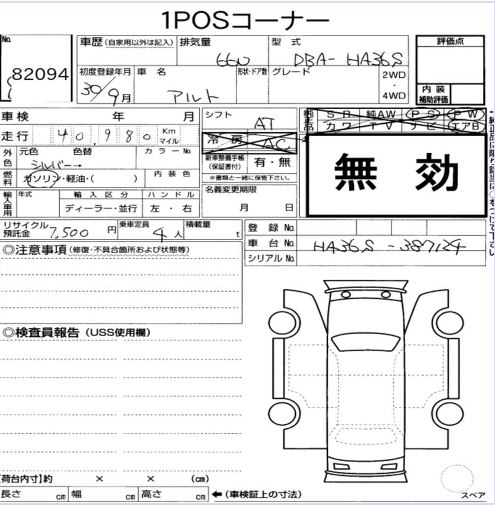 1POSコーナー
No.
82094
車歴 (自家用以外は記入)
排気量
660
型式
DBA- HA36S
評価点
初度登録年月
30/9月
車名
アルト
形状・ドア数
グレード
2WD
・
4WD
内装
補助評価
車検 年 月
シフト
AT
純正品
SR 純AW PS PW
カワ TV ナビ エアB
走行 40,980 Km
マイル
冷房 AC
外色
元色 色替
シルバー→
カラーNo.
新車整備手帳
(保証書付)
有・無
※書類と一緒に保管下さい。
無効
燃料
ガソリン・軽油・( )
内装色
輸入車用
年式
輸入区分
ディーラー・並行
ハンドル
左・右
名義変更期限
月 日
リサイクル
預託金
7,500 円
乗車定員
4人
積載量
t
登録No.
車台No. HA36S-387124
シリアルNo.
◎注意事項 (修復・不具合箇所および状態等)
◎検査員報告 (USS使用欄)
【荷台内寸】約 × × (cm)
長さ cm 幅 cm 高さ cm ←(車検証上の寸法)
スペア